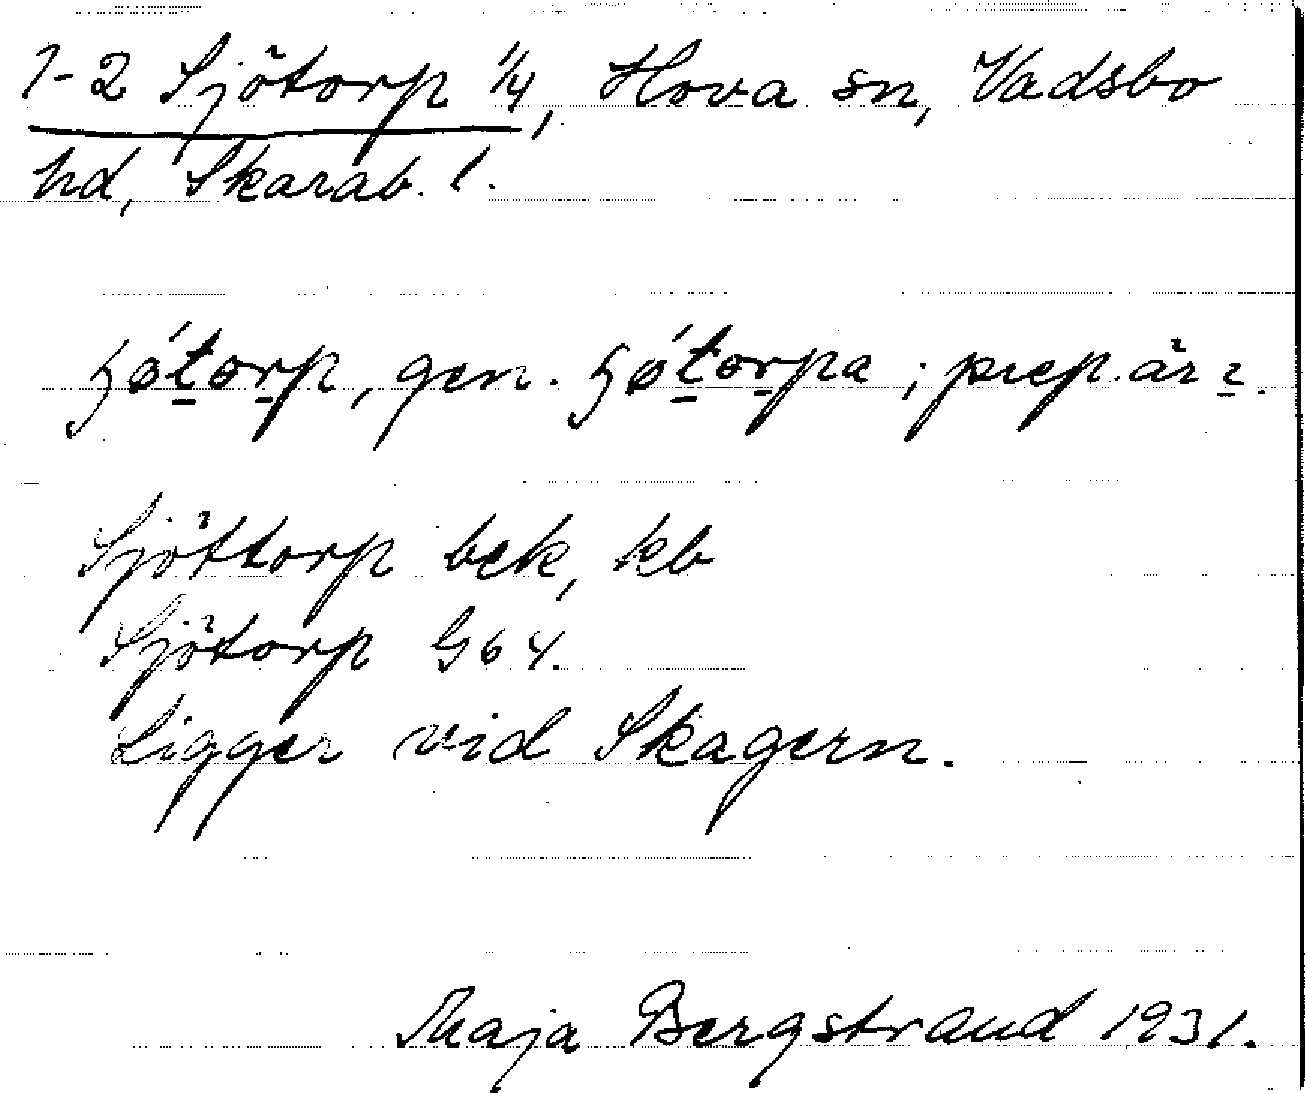 1-2 Sjötorp 1/4, Hova sn, Vadsbo
hd, Skarab. l.
ɧǿtorp, gen. ɧǿtorpa; prep. är ı.
Sjöttorp bek, kb
Sjötorp G64.
Ligger vid Skagern.
Maja Bergstrand 1931.